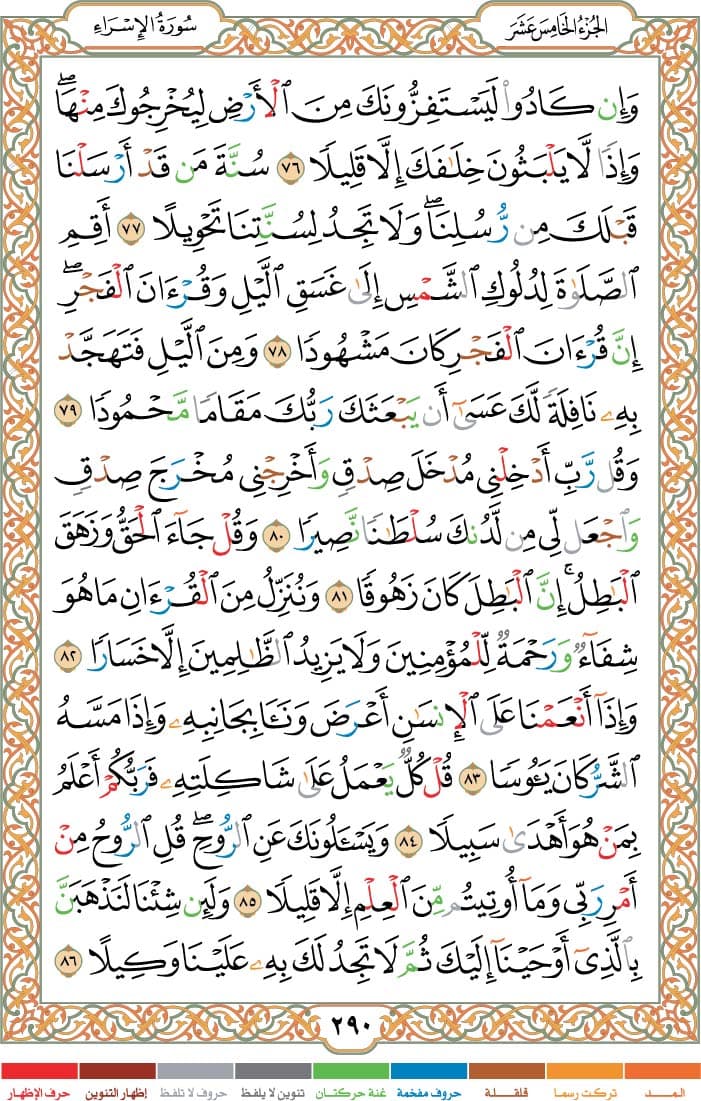 الجزء الخامس عشر
سورة الإسراء
وَإِن كَادُواْ لَيَسْتَفِزُّونَكَ مِنَ ٱلْأَرْضِ لِيُخْرِجُوكَ مِنْهَاۖ
وَإِذًا لَّا يَلْبَثُونَ خِلَٰفَكَ إِلَّا قَلِيلًا ٧٦ سُنَّةَ مَن قَدْ أَرْسَلْنَا
قَبْلَكَ مِن رُّسُلِنَاۖ وَلَا تَجِدُ لِسُنَّتِنَا تَحْوِيلًا ٧٧ أَقِمِ
ٱلصَّلَوٰةَ لِدُلُوكِ ٱلشَّمْسِ إِلَىٰ غَسَقِ ٱلَّيْلِ وَقُرْءَانَ ٱلْفَجْرِۖ
إِنَّ قُرْءَانَ ٱلْفَجْرِ كَانَ مَشْهُودًا ٧٨ وَمِنَ ٱلَّيْلِ فَتَهَجَّدْ
بِهِۦ نَافِلَةً لَّكَ عَسَىٰٓ أَن يَبْعَثَكَ رَبُّكَ مَقَامًا مَّحْمُودًا ٧٩
وَقُل رَّبِّ أَدْخِلْنِي مُدْخَلَ صِدْقٍ وَأَخْرِجْنِي مُخْرَجَ صِدْقٍ
وَٱجْعَل لِّي مِن لَّدُنكَ سُلْطَٰنًا نَّصِيرًا ٨٠ وَقُلْ جَآءَ ٱلْحَقُّ وَزَهَقَ
ٱلْبَٰطِلُۚ إِنَّ ٱلْبَٰطِلَ كَانَ زَهُوقًا ٨١ وَنُنَزِّلُ مِنَ ٱلْقُرْءَانِ مَا هُوَ
شِفَآءٌ وَرَحْمَةٌ لِّلْمُؤْمِنِينَ وَلَا يَزِيدُ ٱلظَّٰلِمِينَ إِلَّا خَسَارًا ٨٢
وَإِذَآ أَنْعَمْنَا عَلَى ٱلْإِنسَٰنِ أَعْرَضَ وَنَـَٔا بِجَانِبِهِۦ وَإِذَا مَسَّهُ
ٱلشَّرُّ كَانَ يَـُٔوسًا ٨٣ قُلْ كُلٌّ يَعْمَلُ عَلَىٰ شَاكِلَتِهِۦ فَرَبُّكُمْ أَعْلَمُ
بِمَنْ هُوَ أَهْدَىٰ سَبِيلًا ٨٤ وَيَسْـَٔلُونَكَ عَنِ ٱلرُّوحِۖ قُلِ ٱلرُّوحُ مِنْ
أَمْرِ رَبِّي وَمَآ أُوتِيتُم مِّنَ ٱلْعِلْمِ إِلَّا قَلِيلًا ٨٥ وَلَئِن شِئْنَا لَنَذْهَبَنَّ
بِٱلَّذِيٓ أَوْحَيْنَآ إِلَيْكَ ثُمَّ لَا تَجِدُ لَكَ بِهِۦ عَلَيْنَا وَكِيلًا ٨٦
٢٩٠
المـــد تركت رسما قلقـــلة حروف مفخمة غنة حركتان تنوين لا يلفظ حروف لا تلفظ إظهار التنوين حرف الإظهار